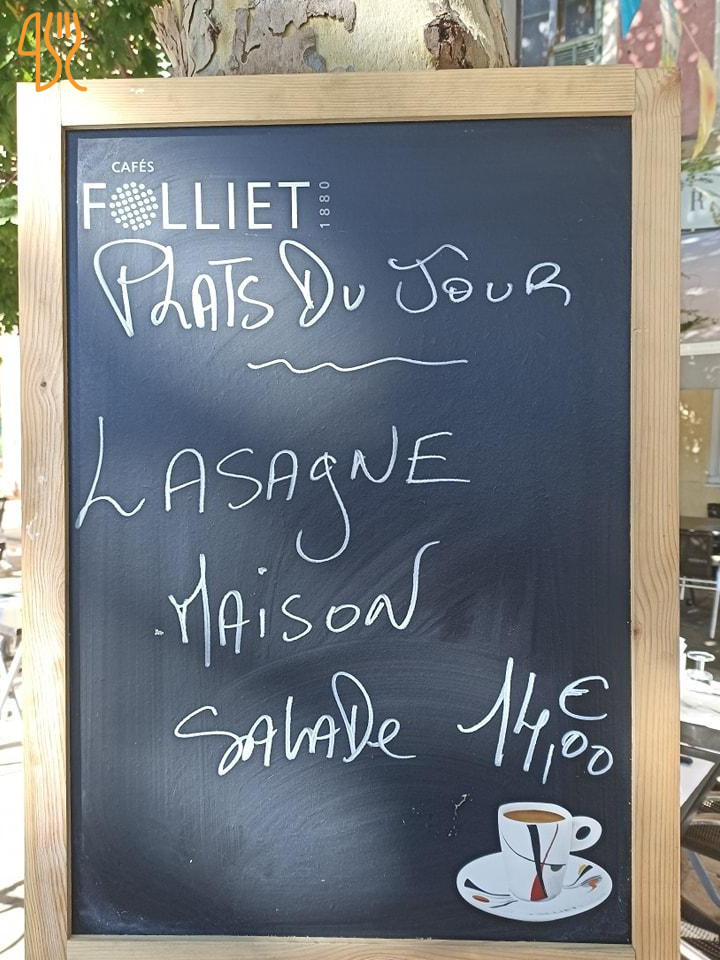 CAFÉS
FOLLIET 1880
PLATS DU JOUR
LASAGNE
MAISON
SALADE 14,00€
FOLLIET